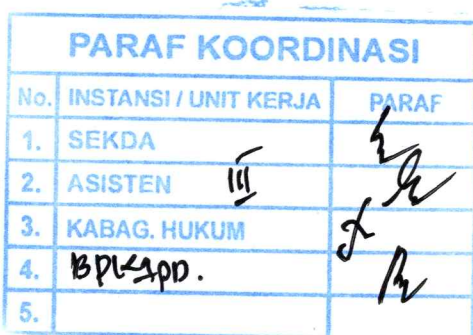 PARAF KOORDINASI
No. INSTANSI / UNIT KERJA PARAF
1. SEKDA
2. ASISTEN III
3. KABAG. HUKUM
4. BPKAPD.
5.